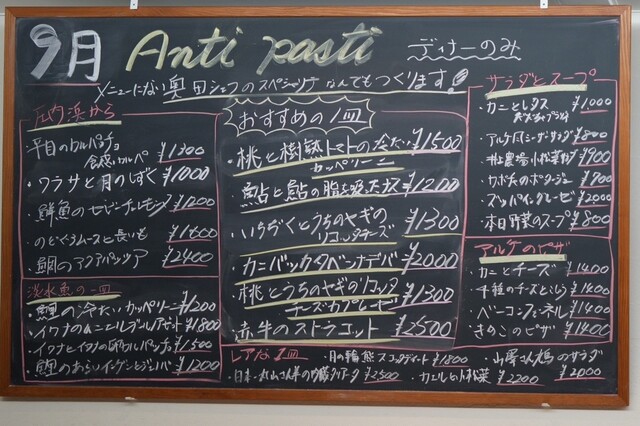 9月 Anti pasti ディナーのみ
メニューにない奥田シェフのスペシャリテなんでもつくります!
庄内浜から
平目のカルパッチョ
¥1300
・ワラサと月のしずく ¥1000
・鮮魚のセビーチェレモン ¥1200
・のどぐろムースと長いも ¥1600
・鯛のアクアパッツア ¥2400
淡水魚の一皿
・鯉の冷たいカッペリーニ ¥1200
・イワナのムニエル ¥1800
・イワナと ¥1500
・鯉のあらい ¥1200
おすすめの1皿
・桃と樹熟トマトの冷たい ¥1500
カッペリーニ
・鮎と鮎の脂を吸ったナス ¥1200
・いちぢくとうちのヤギの ¥1300
リコッタチーズ
・カニバッタタベンナデバ ¥2000
・桃とうちのヤギのリコッタ ¥1300
チーズカプレーゼ
・赤牛のストラコット ¥2500
サラダとスープ
・カニとレタス ¥1000
・アルケのシーザーサラダ ¥800
・井上農場小松菜サラダ ¥900
・カボチャのポタージュ ¥900
・ズッパディペーシェ ¥2000
・本日野菜のスープ ¥800
アルケのピザ
・カニとチーズ ¥1400
・千種のチーズとしらす ¥1400
・ベーコンとフェンネル ¥1400
・きのこのピザ ¥1400
レアな1皿 ・月の輪熊 ¥1800 ・山澤さん鳩のサラダ ¥2000
・日本一丸山さん羊の ¥2500 ・カエルと小松菜 ¥2200